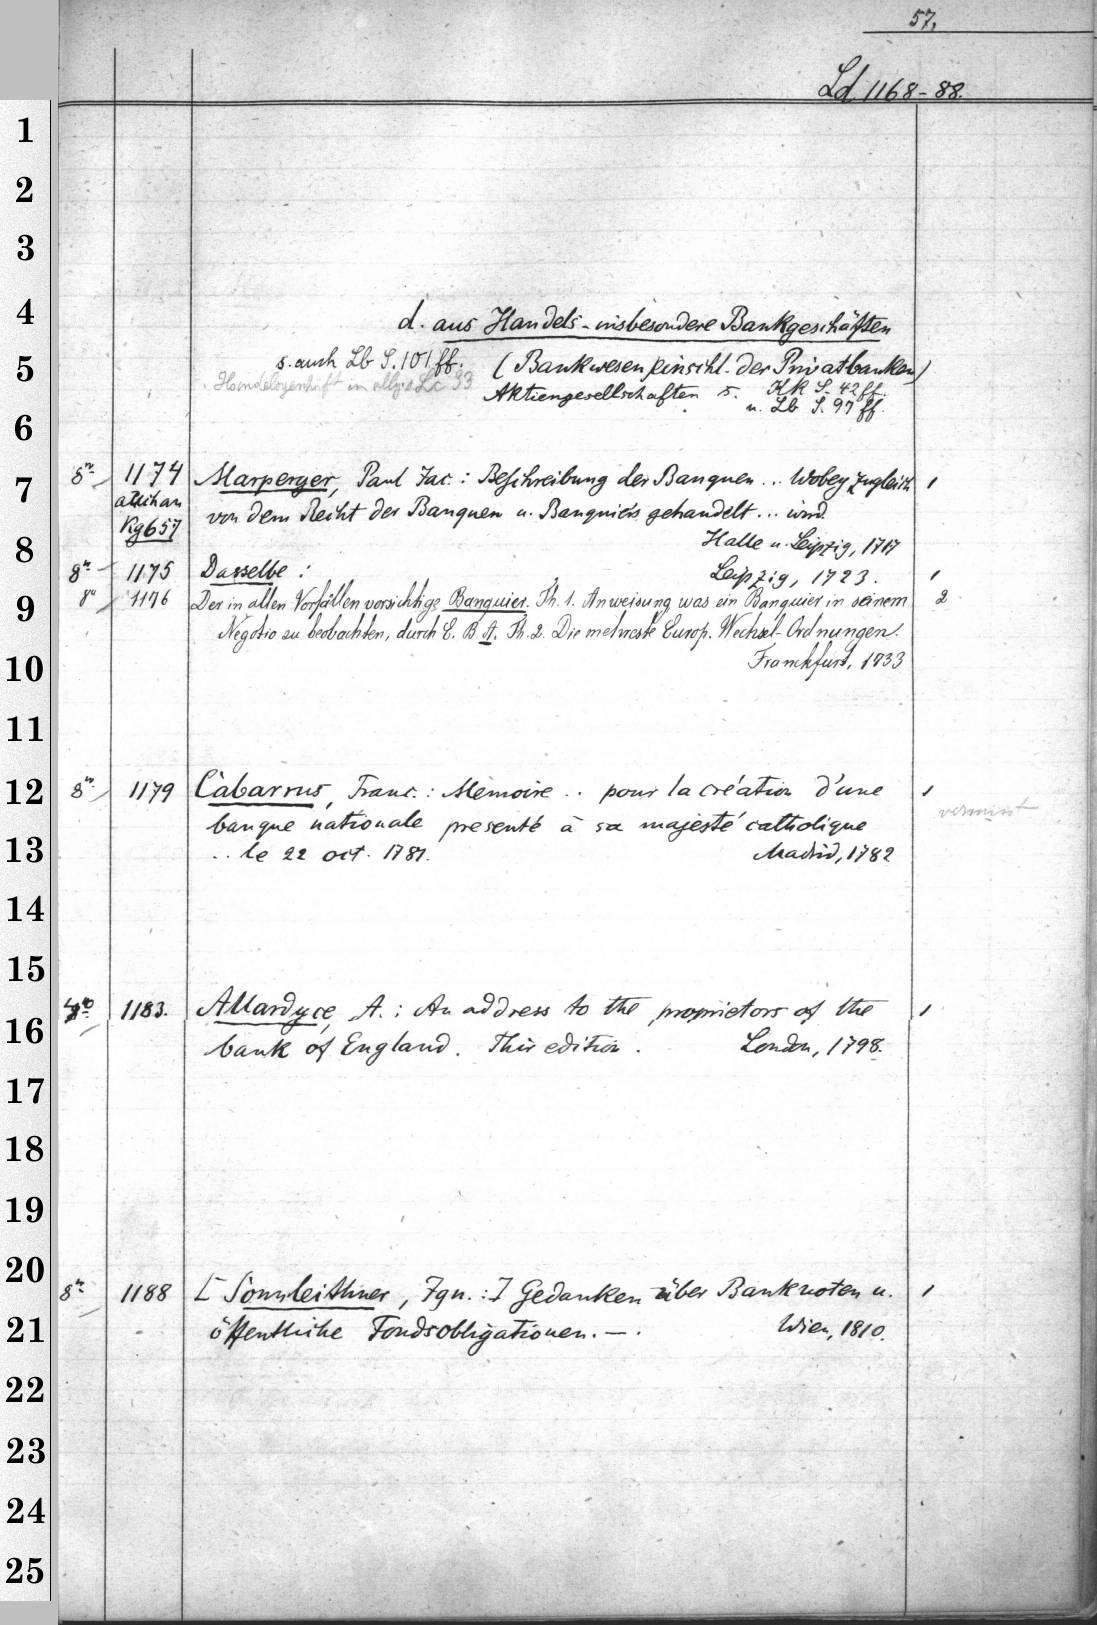 57.
Ld. 1168-88.
1
2
3
4
d. aus Handels-insbesondere Bankgeschäften
5
s. auch Lb S. 101 ff. (Bankwesen einschl. der Privatbanken)
Aktiengesellschaften s. Kk S. 42 ff.
u. Lb S. 97 ff.
6
7
8° 1174 Marperger, Paul Jac.: Beschreibung der Banquen ... Wobey zugleich 1
Kg 657 von dem Recht der Banquen u. Banquiers gehandelt ... wird
8
Halle u. Leipzig, 1717
8° 1175 Dasselbe: Leipzig, 1723. 1
9
8° 1176 Der in allen Vorfällen vorsichtige Banquier. Th. 1. Anweisung was ein Banquier in seinem 2
Negotio zu beobachten, durch E. B. A. Th. 2. Die mehreste Europ. Wechsel-Ordnungen.
10
Franckfurt, 1733
11
12
8° 1179 Cabarrus, Franc.: Memoire .. pour la création d'une 1
banque nationale presenté à sa majesté catholique
vermisst
13
.. le 22 oct. 1781. Madrid, 1782
14
15
16
1183. Allardyce, A.: An address to the proprietors of the 1
bank of England. Thir edition. London, 1798.
17
18
19
20
8° 1188 [Sonnleithner, Ign.:] Gedanken über Banknoten u. 1
21
öffentliche Fondsobligationen. —. Wien, 1810.
22
23
24
25